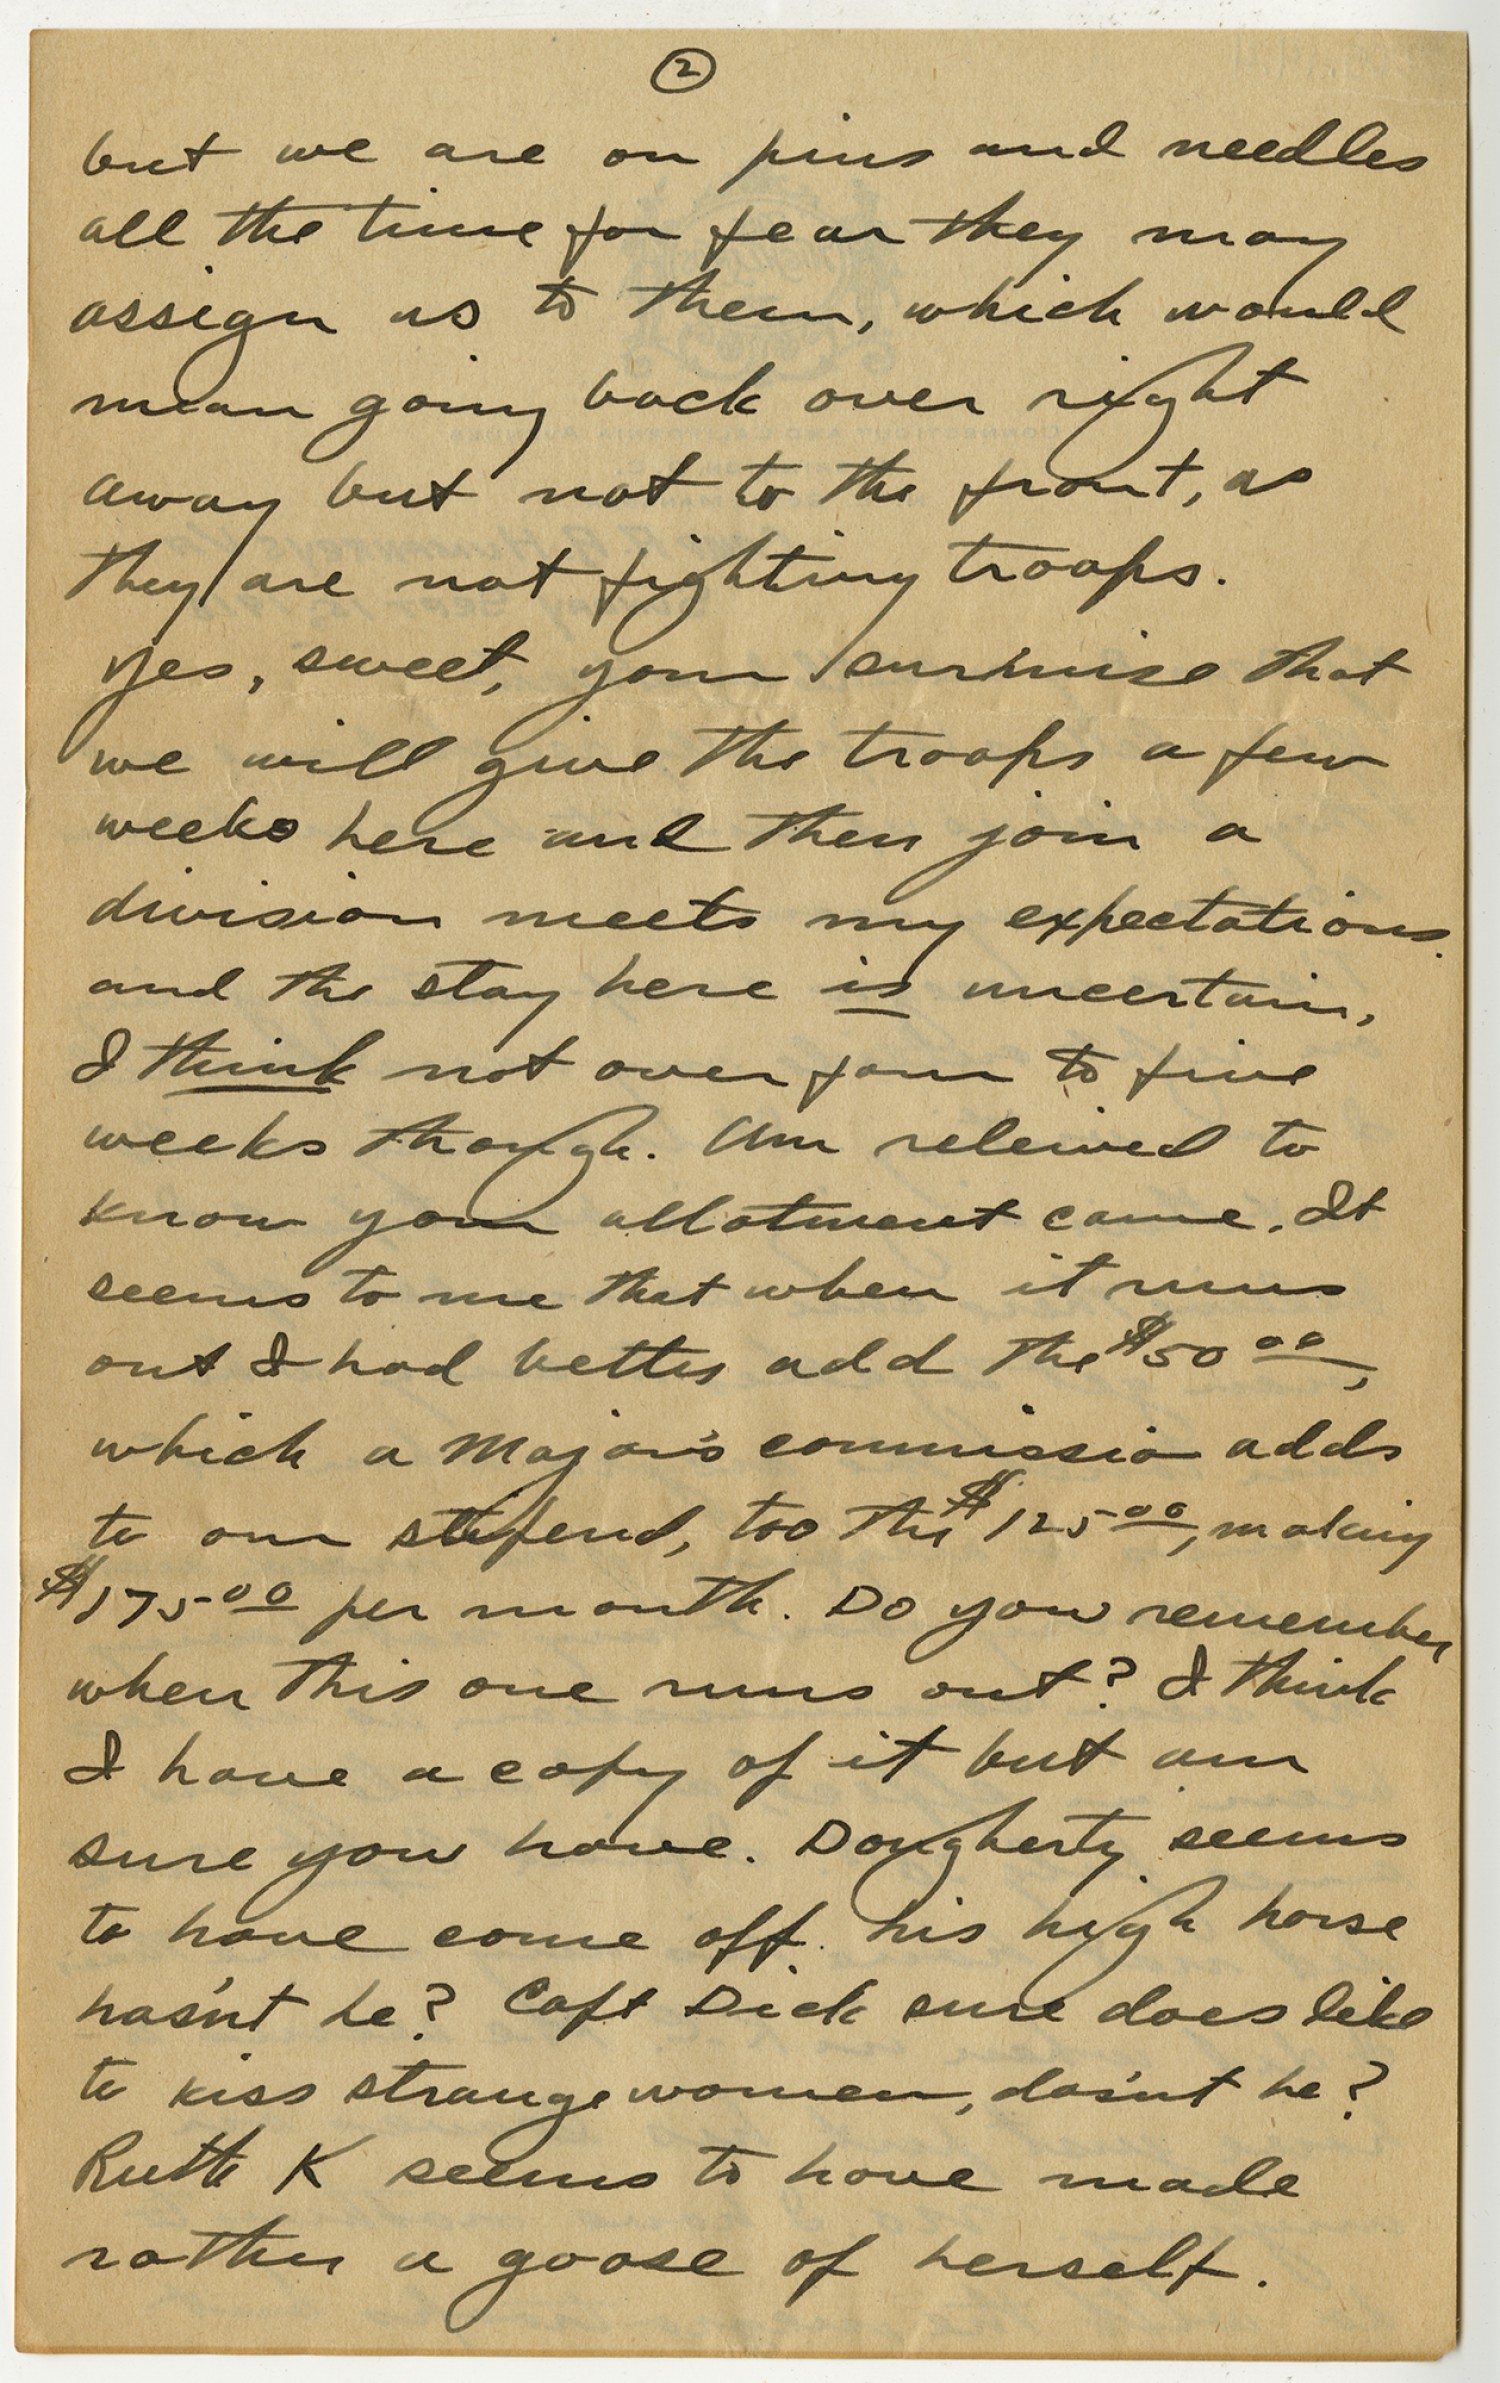 2
but we are on pins and needles
all the time for fear they may
assign us to them, which would
mean going back over right
away but not to the front, as
they are not fighting troops.
Yes, sweet, your surmise that
we will give the troops a few
weeks here and then join a
division meets my expectations.
and the stay here is uncertain,
I think not over four to five
weeks though. Am releived to
know your allotment came. It
seems to me that when it runs
out I had better add the $50 00,
which a Major's commissio adds
to our stipend, too the $125 00, making
$175 00 per month. Do you remember
when this one runs out? I think
I have a copy of it but am
sure you have. Dougherty seems
to have come off his high horse
has'nt he? Capt Dick sure does like
to kiss strange women, dos'nt he?
Ruth K seems to have made
rather a goose of herself.